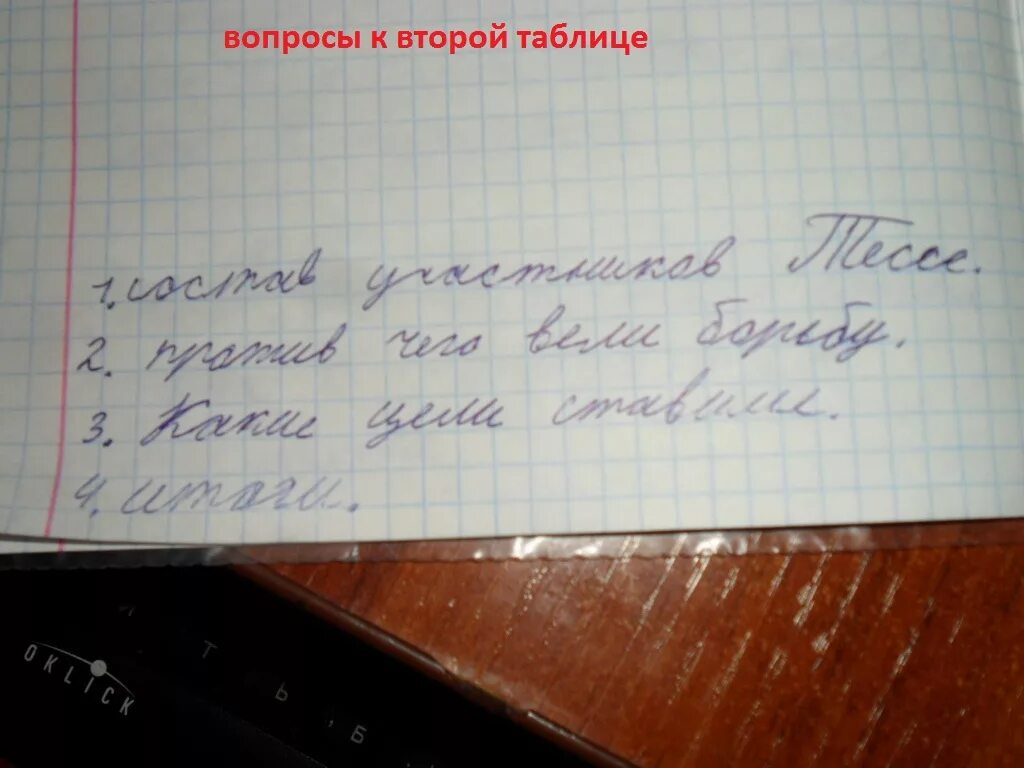 вопросы к второй таблице
1. состав участников
2. против чего вели борьбу.
3. Какие цели ставили.
4. итоги.
OKLICK
И Т Ь Б